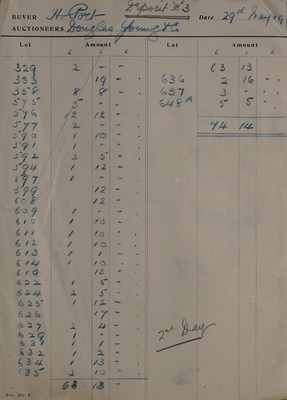 Deposit £3
BUYER H. Port Date 29th May 19
AUCTIONEERS Douglas Young & Co
Lot Amount Lot Amount
£ s. d. £ s. d.
329 2 - -
353 19 -
358 8 8 -
575 5 - -
576 12 12 -
577 2 - -
590 1 10 -
591 1 - -
592 2 5 -
594 1 12 -
597 1 - -
599 12 -
608 12 -
609 1 - -
610 1 10 -
611 1 10 -
612 1 10 -
613 1 1 -
614 1 10 -
619 15 -
622 1 5 -
624 2 5 -
625 1 12 -
626 17 -
627 2 4 -
629 1 - -
631 1 1 -
632 1 2 -
634 1 13 -
635 2 10 -
63 13 -
63 13 -
636 2 16 -
637 3 - -
648A 5 5 -
74 14 -
2nd Day